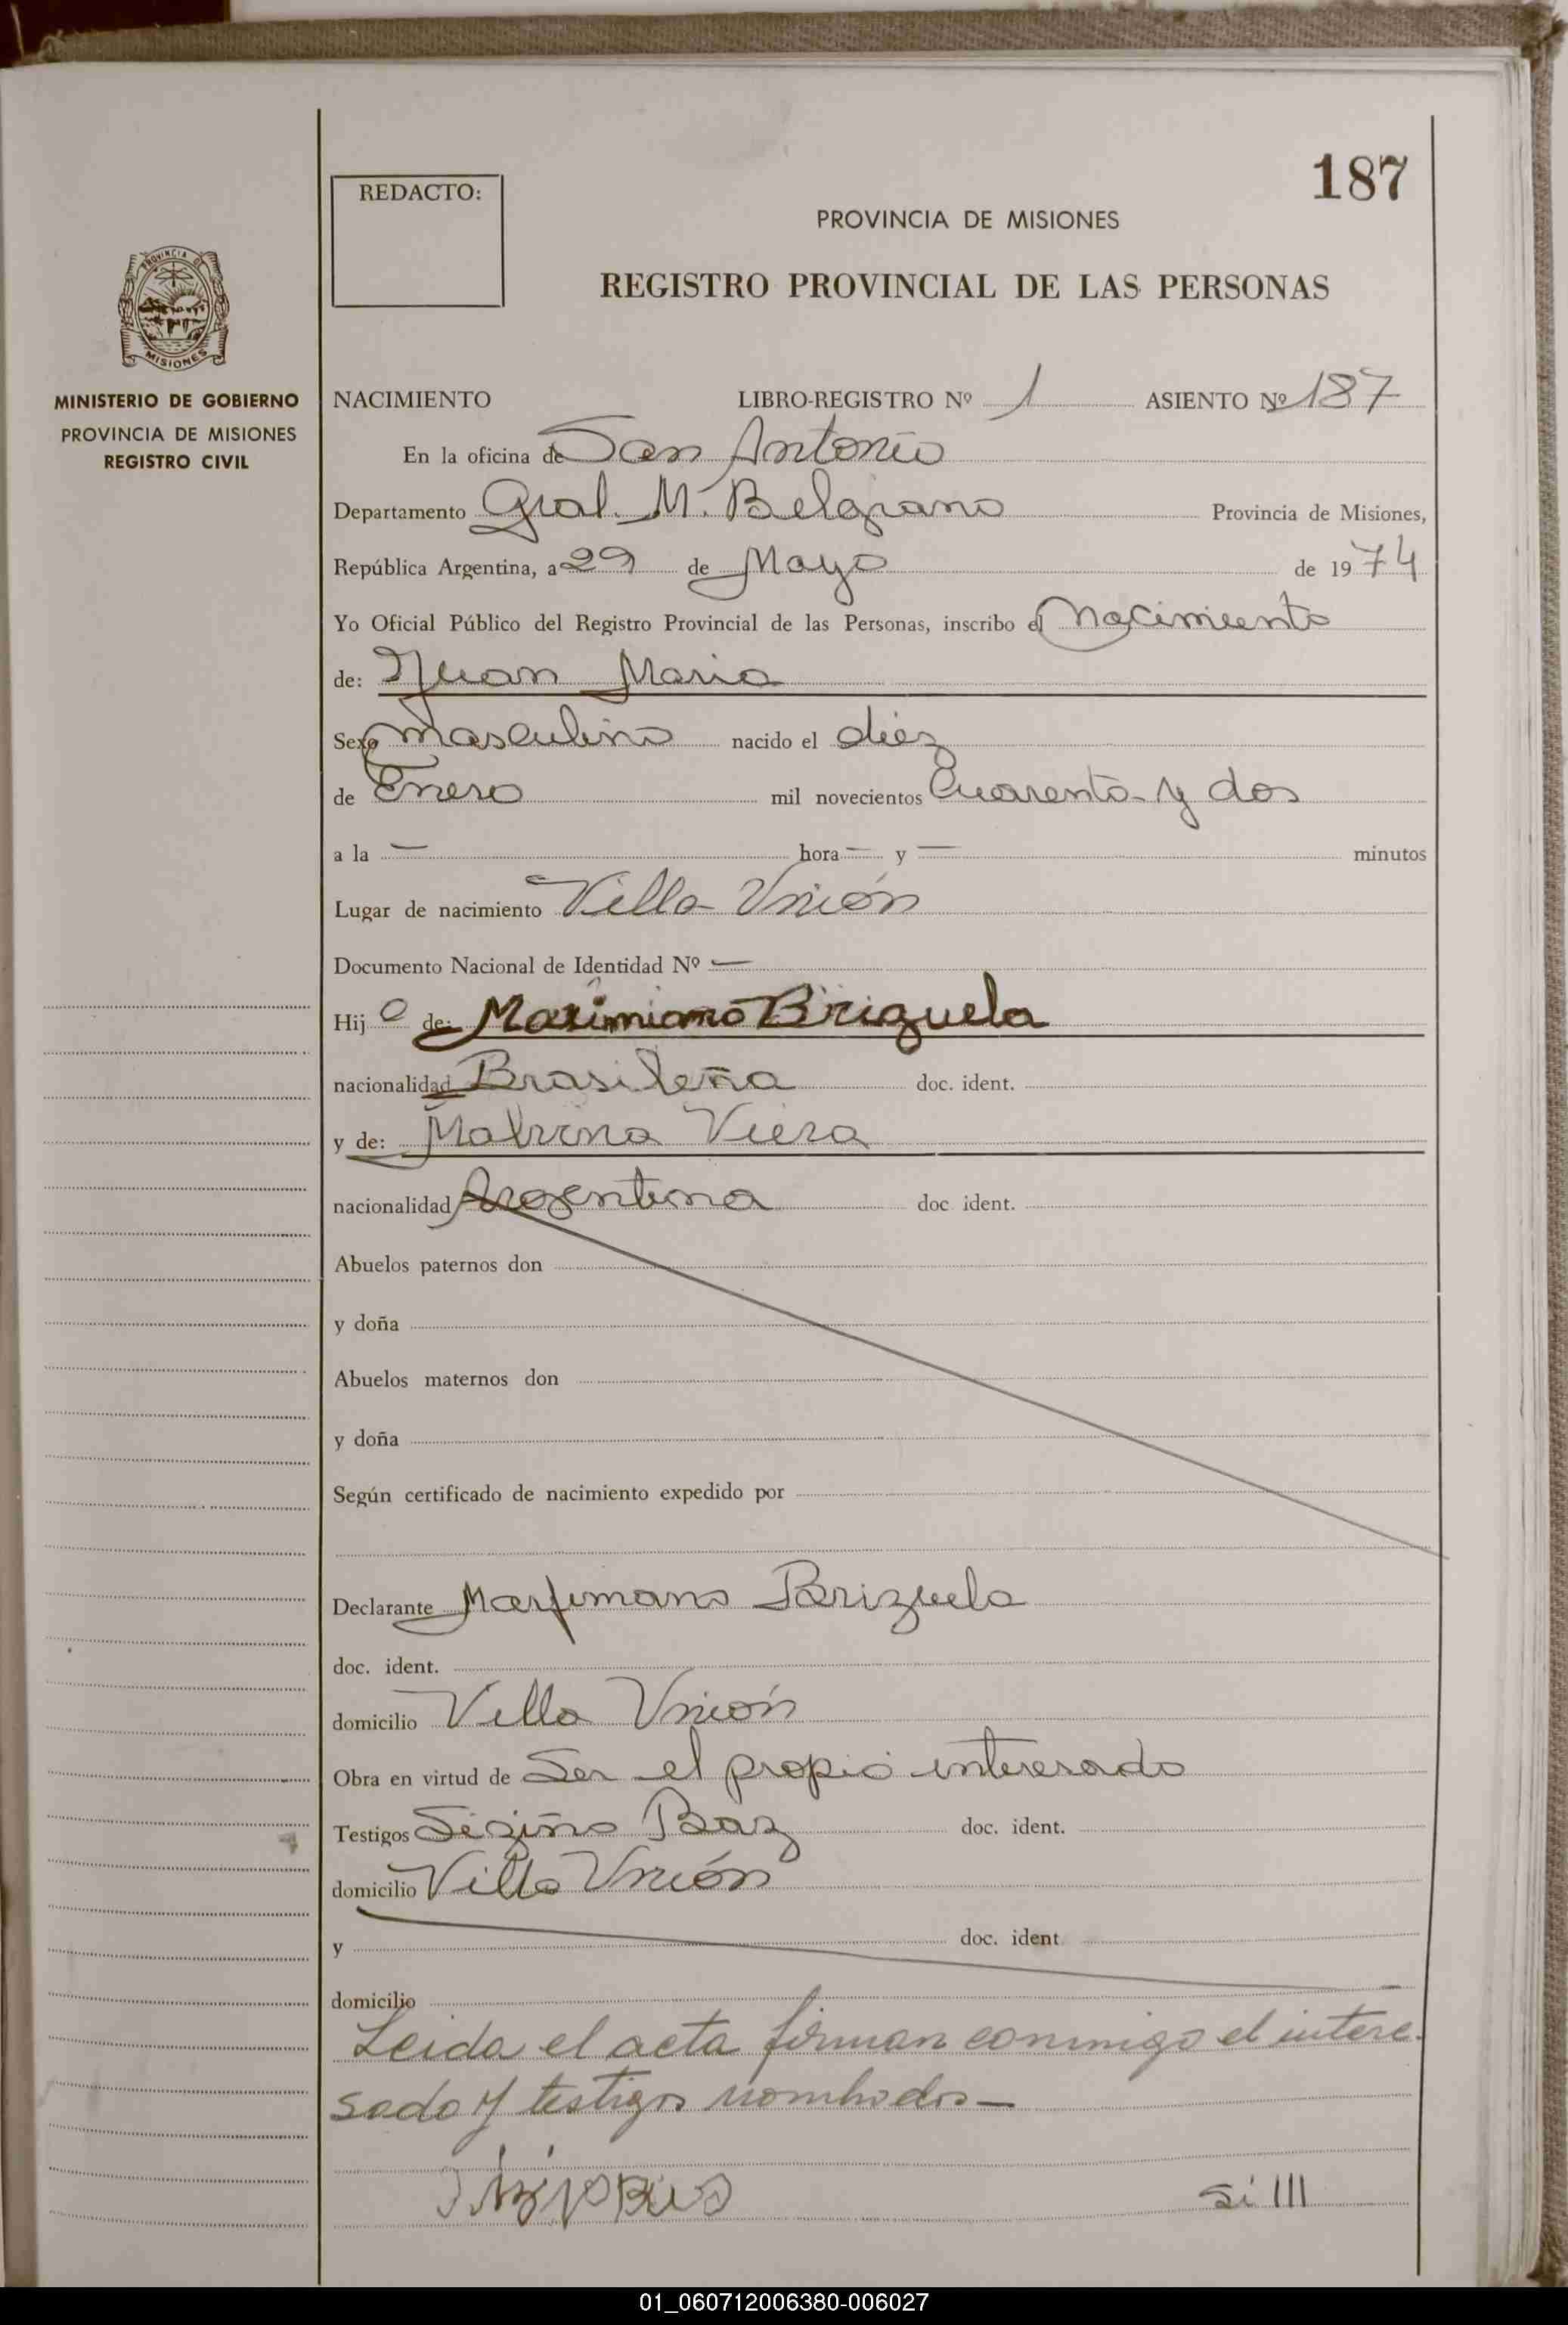 187
REDACTO:
PROVINCIA DE MISIONES
REGISTRO PROVINCIAL DE LAS PERSONAS
PROVINCIA DE
MISIONES
MINISTERIO DE GOBIERNO
PROVINCIA DE MISIONES
REGISTRO CIVIL
NACIMIENTO LIBRO-REGISTRO Nº 1 ASIENTO Nº 187
En la oficina de San Antonio
Departamento Gral. M. Belgrano Provincia de Misiones,
República Argentina, a 29 de Mayo de 1974
Yo Oficial Público del Registro Provincial de las Personas, inscribo el Nacimiento
de: Juan Maria
Sexo Masculino nacido el diez
de Enero mil novecientos Cuarenta y dos
a la — hora — y — minutos
Lugar de nacimiento Villa Unión
Documento Nacional de Identidad Nº —
Hijo de: Maximiano Brizuela
nacionalidad Brasileña doc. ident.
y de: Malvina Viera
nacionalidad Argentina doc ident.
Abuelos paternos don
y doña
Abuelos maternos don
y doña
Según certificado de nacimiento expedido por
Declarante Brizuela
doc. ident.
domicilio Villa Unión
Obra en virtud de Ser el propio interesado
Testigos Baz doc. ident.
domicilio Villa Unión
y doc. ident
domicilio
Leida el acta firman conmigo el intere-
sado y testigos nombrados—
01_060712006380-006027